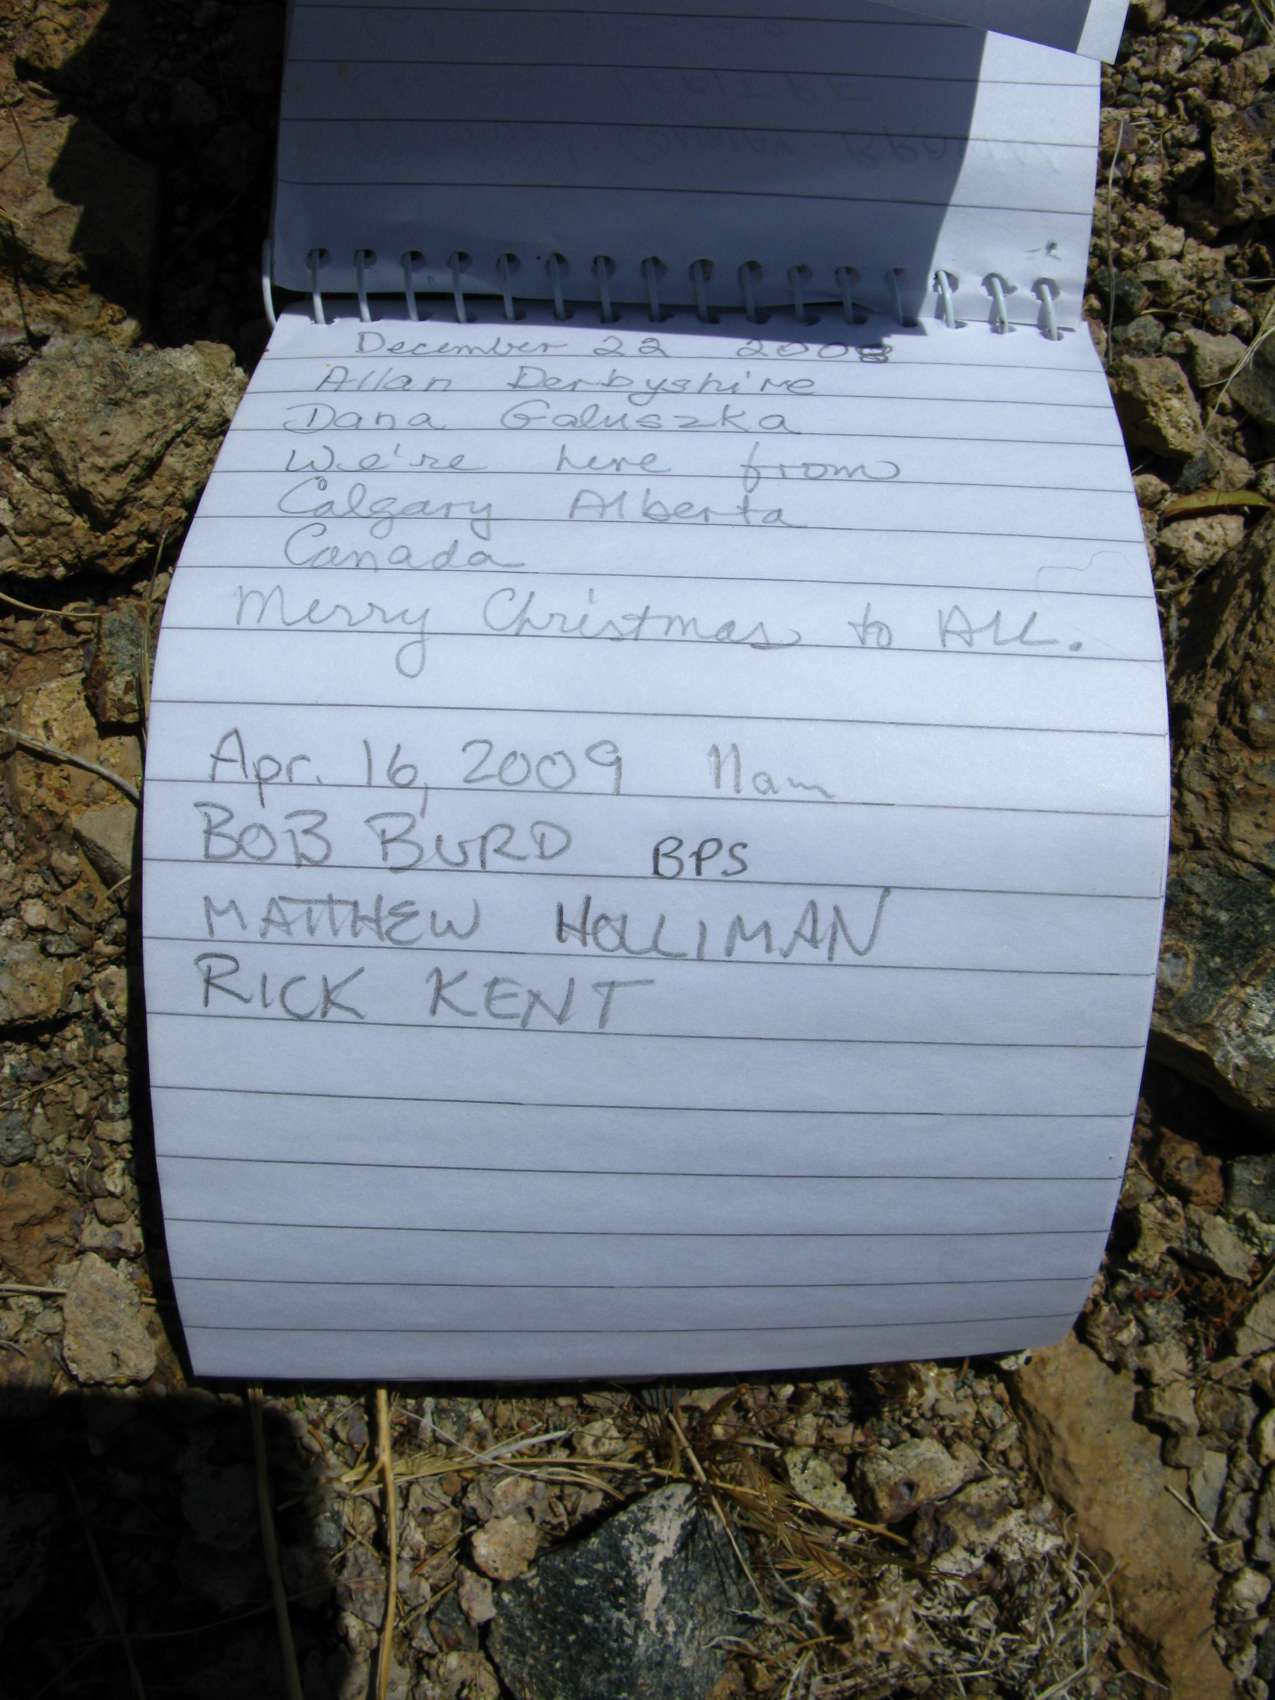 December 22 2008
Allan Derbyshire
Dana Galuszka
We're here from
Calgary Alberta
Canada
Merry Christmas to All.
Apr. 16, 2009 11am
BOB BURD BPS
MATTHEW HOLLIMAN
RICK KENT